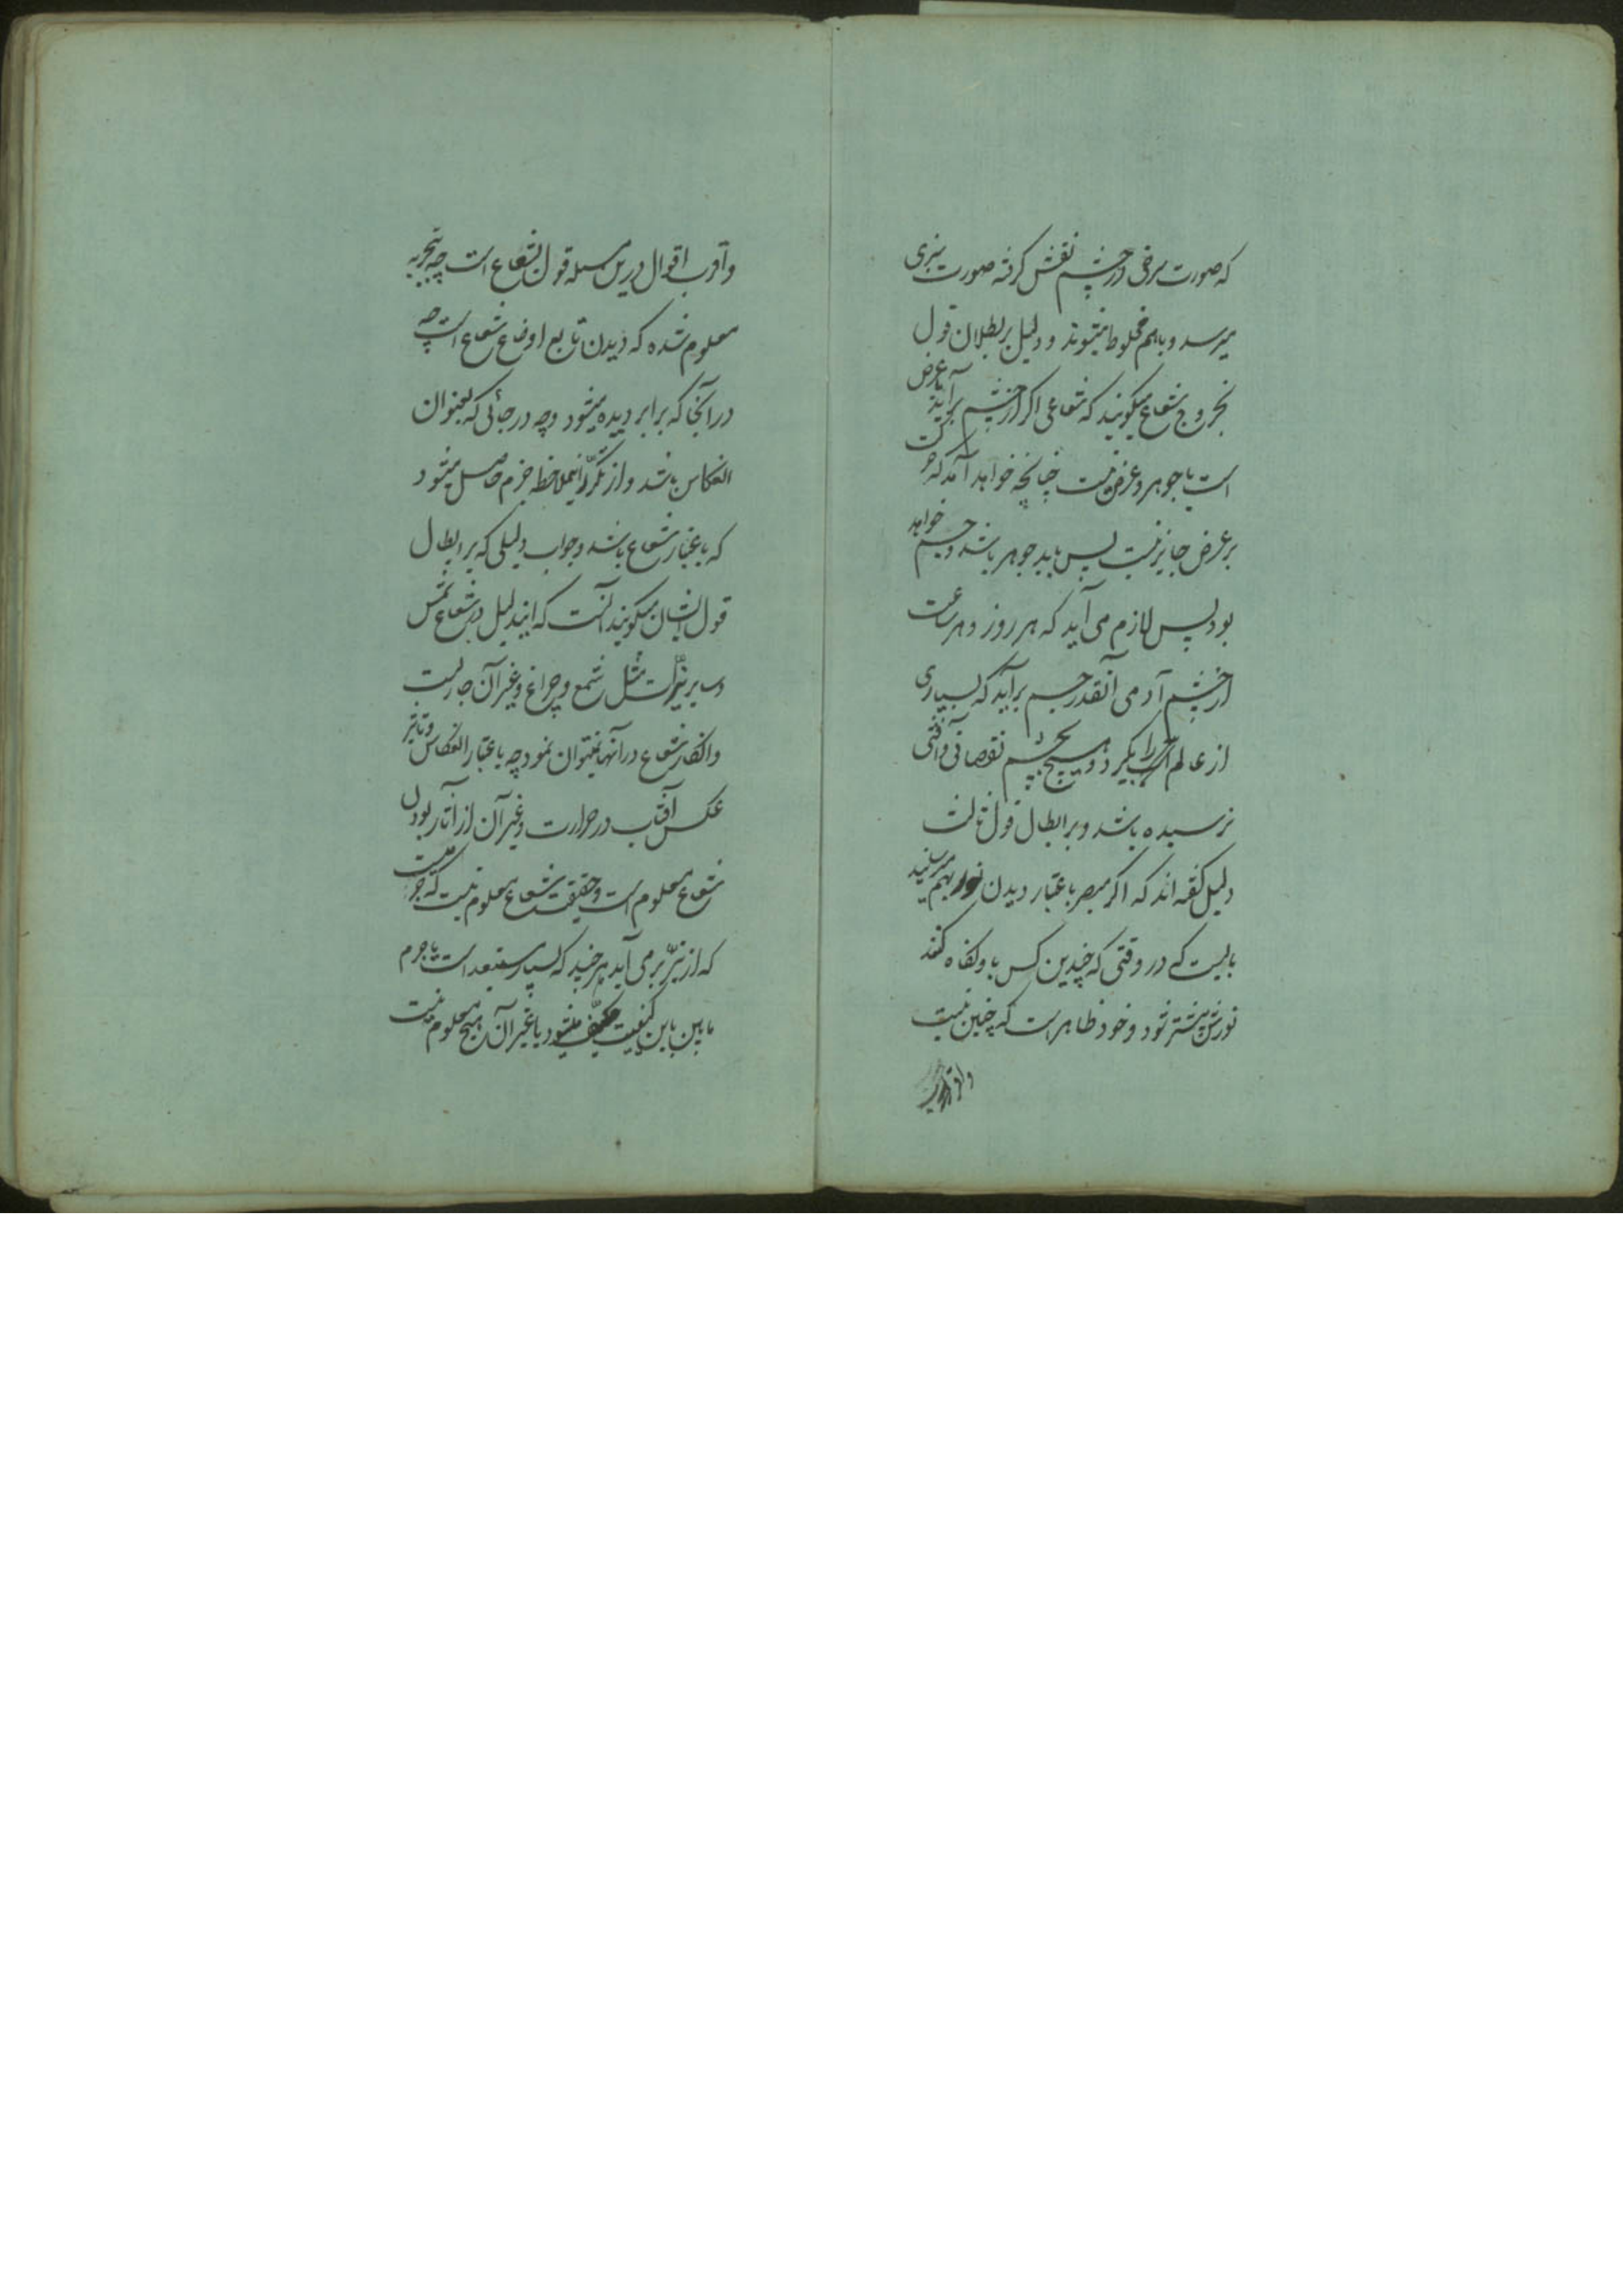 که صورت سرخی در چشم نقش گرفته صورت سبزی
میرسد و باهم مخلوط نمیشوند و دلیل بر بطلان قول
بخروج شعاع میگویند که شعاعی اگر از چشم برآید یا عرض
است یا جوهر و عرض نیست چنانچه خواهد آمد که حرکت
بر عرض جایز نیست پس باید جوهر باشد و جسم خواهد
بود پس لازم می آید که هر روز و هر ساعت
از چشم آدمی آنقدر جسم برآید که بسیاری
از عالم را بگیرد و هیچ بچشم نقصانی و آفتی
نرسیده باشد و بر ابطال قول ثالث
دلیل گفته اند که اگر مبصر باعتبار دیدن نور بهم میرسانید
بایست که در وقتی که چندین کس باو نگاه کنند
نورش بیشتر شود و خود ظاهر است که چنین نیست
واقرب
واقرب اقوال درین مسئله قول بشعاع است چه بتجربه
معلوم شده که دیدن تابع اوضاع شعاع است چه
در آنجا که برابر دیده میشود و چه در جائی که بعنوان
انعکاس باشد و از تکرر اینملاحظه جزم حاصل میشود
که باعتبار شعاع باشد و جواب دلیلی که بر ابطال
قول ایشان میگویند آنست که ایندلیل در شعاع شمس
و سایر نیرات مثل شمع و چراغ و غیر آن جاریست
وانکار شعاع در آنها نمیتوان نمود چه باعتبار انعکاس و تاثیر
عکس آفتاب در حرارت و غیر آن از آثار بودن
شعاع معلوم است و حقیقت شعاع معلوم نیست که جرمیست
که از نیر بر می آید هرچند که بسیار مستبعد است یا جرم
مابین باین کیفیت متکیف میشود یا غیر آن هیچ معلوم نیست